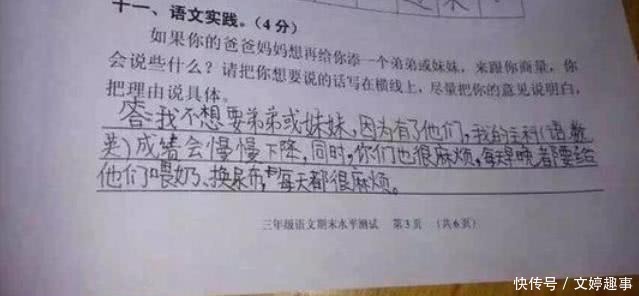 十一、语文实践。(4分)
如果你的爸爸妈妈想再给你添一个弟弟或妹妹，来跟你商量，你
会说些什么？请把你想要说的话写在横线上，尽量把你的意见说明白，
把理由说具体。
答:我不想要弟弟或妹妹，因为有了他们，我的主科(语数
英)成绩会慢慢下降，同时，你们也很麻烦，每天早晚都要给
他们喂奶、换尿布，每天都很麻烦。
三年级语文期末水平测试 第3页 (共6页)
快传号 / 文婷趣事